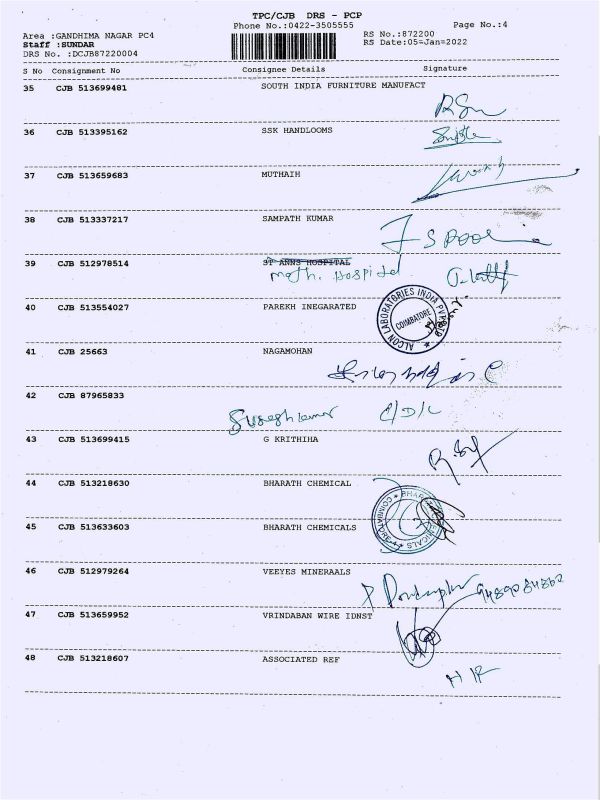 TPC/CJB DRS - PCP
Phone No.:0422-3505555 Page No.:4
Area :GANDHIMA NAGAR PC4 RS No.:872200
Staff :SUNDAR RS Date:05=Jan=2022
DRS No. :DCJB87220004
S No Consignment No Consignee Details Signature
35 CJB 513699481 SOUTH INDIA FURNITURE MANUFACT
36 CJB 513395162 SSK HANDLOOMS
37 CJB 513659683 MUTHAIH
38 CJB 513337217 SAMPATH KUMAR
39 CJB 512978514 ST ANNS HOSPITAL
Hospital
40 CJB 513554027 PAREKH INEGARATED
ALCON LABORATORIES INDIA PVT LTD
COIMBATORE
41 CJB 25663 NAGAMOHAN
42 CJB 87965833
Sureshkumar
43 CJB 513699415 G KRITHIHA
44 CJB 513218630 BHARATH CHEMICAL
BHARATH CHEMICALS
COIMBATORE
45 CJB 513633603 BHARATH CHEMICALS
46 CJB 512979264 VEEYES MINERAALS
47 CJB 513659952 VRINDABAN WIRE IDNST
48 CJB 513218607 ASSOCIATED REF